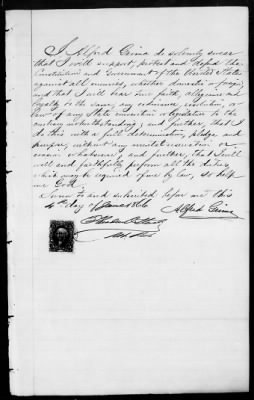 I Alfred do solemnly swear
that I will support, protect and defend the
Constitution and Government of the United States
against all enemies, whether domestic or foreign,
and that I will bear true faith, allegiance and
loyalty to the same, any ordinance, resolution, or
law of any State convention or legislation to the
contrary notwithstanding; and further, that I do
this with a full determination, pledge and
purpose, without any mental reservation or
evasion whatsoever; and further, that I will
well and faithfully perform all the duties
which may be required of me by law, so help
me God.
Sworn to and subscribed before me this
4th day of
Alfred